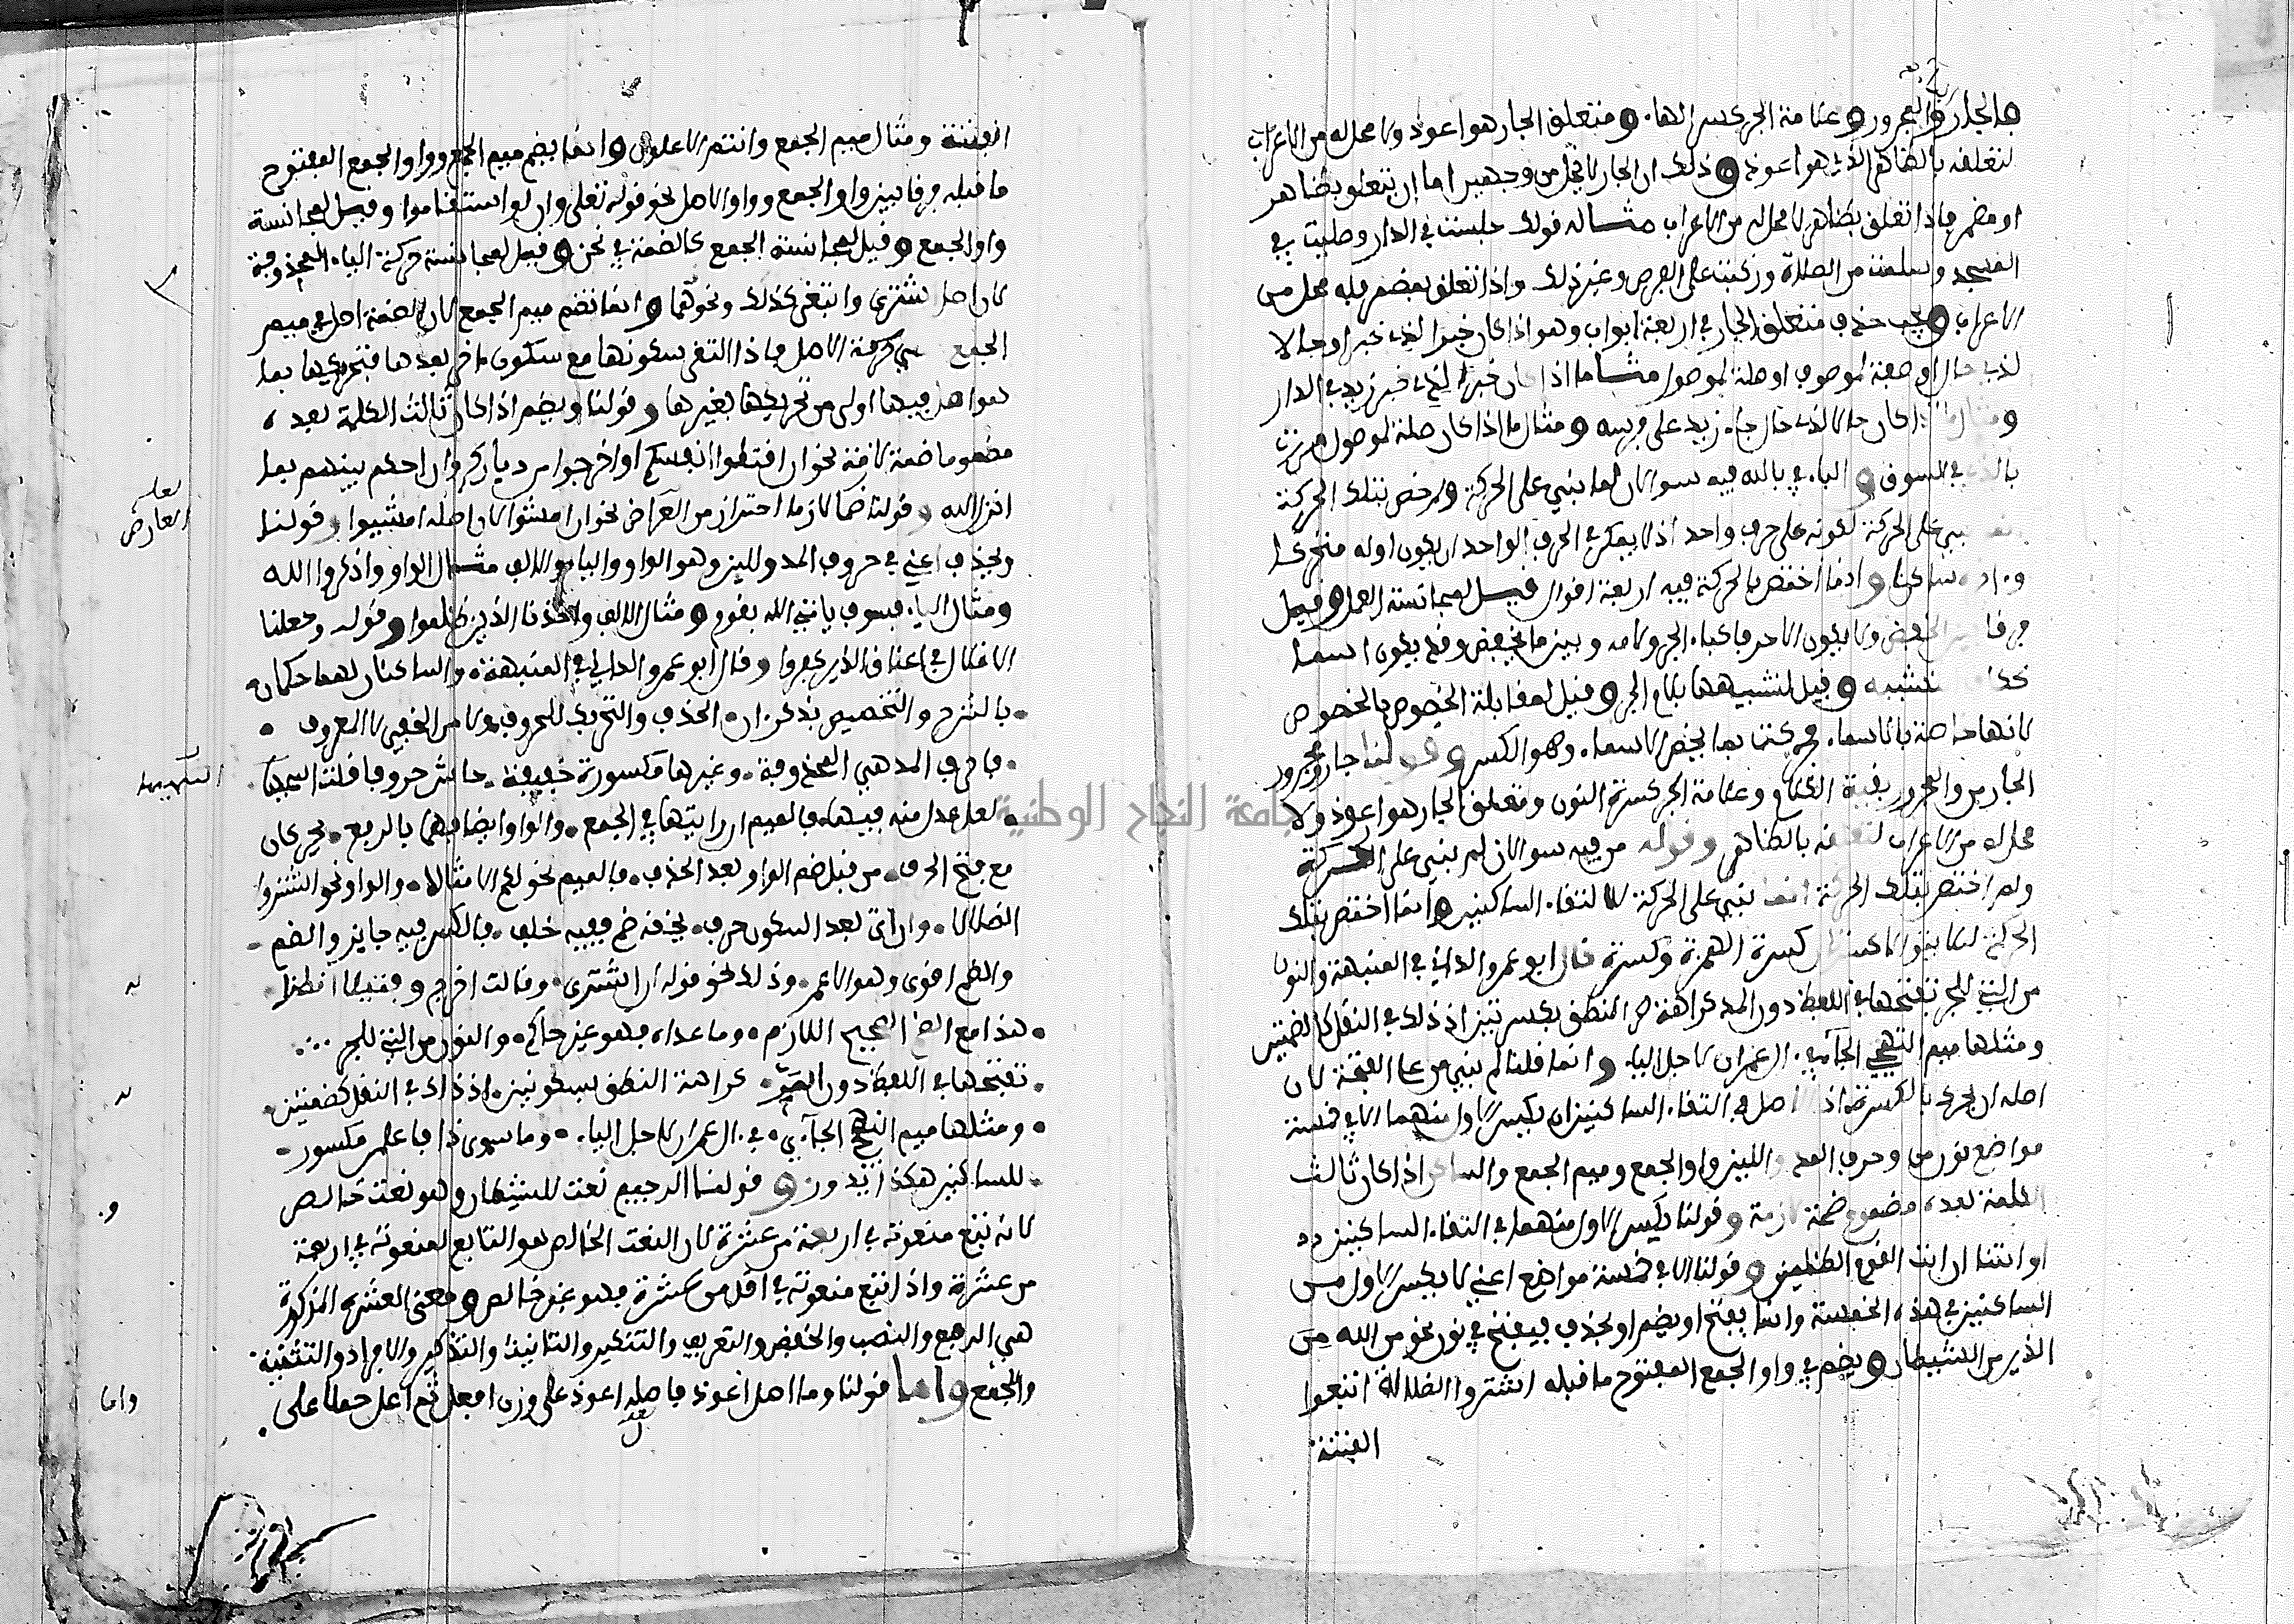 والجار والمجرور وعلامة الجر كسر الهاء. ومتعلق الجار هو اعوذ ولا محل له من الاعراب
لتعلقه بالظاهر الذي هو اعوذ وذلك ان الجار لا يخلو من وجهين اما ان يتعلق بظاهر
او مضمر فاذا تعلق بظاهر لا محل له من الاعراب مثاله قولك جلست في الدار وصليت في
المسجد وسلمت من الصلاة وركبت على الفرس وغير ذلك واذا تعلق بمضمر فله محل من
الاعراب ويجب حذف متعلق الجار في اربعة ابواب وهو اذا كان خبرا لذي خبر او حالا
لذي حال او صفة لموصوف او صلة لموصول مثال ما اذا كان خبرا لذي خبر زيد في الدار
ومثال ما اذا كان حالا لذي حال جاء زيد على فرسه ومثال ما اذا كان صلة لموصول مررت
بالذي في السوق والباء في بالله فيه سوالان لما بني على الحركة ولم خص بتلك الحركة
بني على الحركة لكونه على حرف واحد اذ لا يمكن في الحرف الواحد ان يكون اوله متحركا
ساكنا وانما اختص بالحركة فيه اربعة اقوال قيل لمجانسة العمل وقيل
فرقا بين الخفض ولا يكون الا حرفا كباء الجر ولامه وبين ما يخفض وقد يكون اسما
التشبيه وقيل لتشبيهها بلام الجر وقيل لمقابلة الخصوص بالخصوص
لانها خاصة بالاسماء. فحركت بما يخص الاسماء. وهو الكسر وقولنا جار ومجرور
الجار من والمجرور بقية الكلام وعلامة الجر كسرة النون ومتعلق الجار هو اعوذ ولا
محل له من الاعراب لتعلقه بالظاهر وقوله من فيه سوالان لم بني على الحركة
ولم اختص بتلك الحركة انما بني على الحركة لالتقاء الساكنين وانما اختص بتلك
الحركة كسرة الهمزة وكسرة قال ابو عمرو الداني في المنبهة والنون
من التي للجر تفتحها في اللفظ دون المد كراهة النطق بكسرتين اذ ذلك في النقل كالضمتين
ومثلها ميم التهجي الجاءي. ال عمران لاجل الياء وانما قلنا لم بني من على الفتحة لان
اصله ان يحرك بالكسرة اذ الاصل في التقاء الساكنين ان يكسر الاول منهما الا في خمسة
مواضع نون من وحرف المد واللين واو الجمع وميم الجمع والساكن اذا كان ثالث
الكلمة بعده مضموم ضمة لازمة وقولنا يكسر الاول منهما في التقاء الساكنين
او ائتنا ان ائت القوم الظلمين وقولنا الا في خمسة مواضع اعني لا يكسر الاول من
الساكنين في هذه الخمسة وانما يفتح او يضم او يحذف فيفتح في نون نحو من الله من
الذين من الشيطان ويضم في واو الجمع المفتوح ما قبله اشتروا الضلالة ابتغوا
الفتنة
الفتنة ومثال ميم الجمع وانتم الاعلون وانما يضم ميم الجمع وواو الجمع المفتوح
ما قبله فرقا بين واو الجمع وواو الاصل نحو قوله تعلى وان لو استقاموا وقيل لمجانسة
واو الجمع وقيل لمجانسة الجمع كالضمة في نحن وقيل لمجانسة حركة الياء المحذوفة
لان اصل اشترى وابتغى كذلك ونحوهما وانما تضم ميم الجمع لان الضمة اصل في ميم
الجمع حركة الاصل فاذا التقى سكونها مع سكون اخر بعدها فتحريكها بما
هو اصل فيها اولى من تحريكها بغيرها وقولنا ويضم اذا كان ثالث الكلمة بعده
مضموما ضمة لازمة نحو ان اقتلوا انفسكم او اخرجوا من دياركم وان احكم بينهم بما
انزل الله وقولنا ضما لازما احتراز من العارض نحو ان امشوا لان اصله امشيوا وقولنا
ويحذف اعني في حروف المد واللين وهو الواو والياء والالف مثال الواو واذكروا الله
ومثال الياء فسوف ياتي الله بقوم ومثال الالف واخذنا الذين ظلموا وقوله وجعلنا
الاغلال في اعناق الذين كفروا وقال ابو عمرو الداني في المنبهة والساكنان لهما حكمان
بالشرح والتخصيص يذكران الحذف والتحريك للحروف ولا من الخفي لا المعروف
فاحرف المد هي المحذوفة وغيرها مكسورة خفيفة حاشى حروفا قلت
لعلل منه فيها فالميم ان رايتها في الجمع والواو ايضا فيهما بالرفع يحركان
مع فتح الحرف من قبل ضم الواو بعد الحذف فالميم نحو لكم الامثالا والواو نحو اشتروا
الضلالا وان اتى بعد السكون حرف يخفه ضم ففيه خلف فالكسر فيه جايز والضم
والضم اقوى وهو الاعم وذلك نحو قوله ان اشترى وقالت اخرج وفتيلا انظر
هذا مع الضم الصحيح اللازم وما عداه فهو غير حاكم والنون من التي للجر
تفتحها في اللفظ دون المد كراهة النطق بسكونين اذ ذاك في النقل كضمتين
ومثلها ميم التهجي الجاءي. في ال عمران لاجل الياء. وما سوى ذا فاعلم مكسور
للساكنين هكذا يدور وقولنا الرجيم نعت للشيطان وهو نعت خالص
لانه تبع منعوته في اربعة من عشرة لان النعت الخالص هو التابع لمنعوته في اربعة
من عشرة واذا تبع منعوته في اقل من عشرة فهو غير خالص ومعنى العشرة المذكورة
هي الرفع والنصب والخفض والتعريف والتنكير والتانيث والتذكير والافراد والتثنية
والجمع واما قولنا وما اصل اعوذ فاصله اعوذ على وزن افعل ثم اعل حملا على
لعله
العارض
واما
جامعة النجاح الوطنية